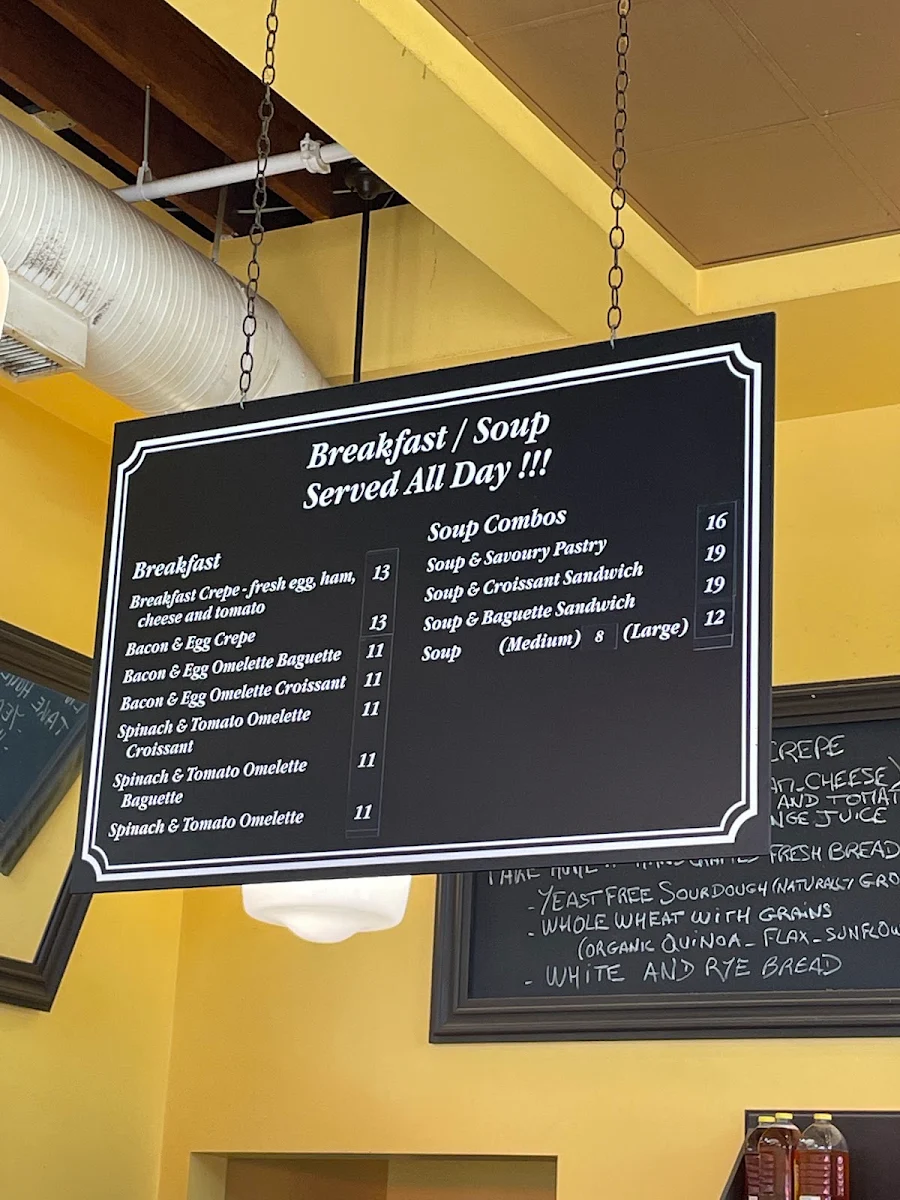 Breakfast / Soup
Served All Day !!!
Breakfast
Breakfast Crepe - fresh egg, ham, 13
cheese and tomato
Bacon & Egg Crepe 13
Bacon & Egg Omelette Baguette 11
Bacon & Egg Omelette Croissant 11
Spinach & Tomato Omelette 11
Croissant
Spinach & Tomato Omelette 11
Baguette
Spinach & Tomato Omelette 11
Soup Combos
Soup & Savoury Pastry 16
Soup & Croissant Sandwich 19
Soup & Baguette Sandwich 19
Soup (Medium) 8 (Large) 12
CREPE
CHEESE)
AND
JUICE
FRESH BREAD
- YEAST FREE SOURDOUGH (NATURALLY
- WHOLE WHEAT WITH GRAINS
(ORGANIC QUINOA - FLAX - SUNFLOW
- WHITE AND RYE BREAD
TAKE